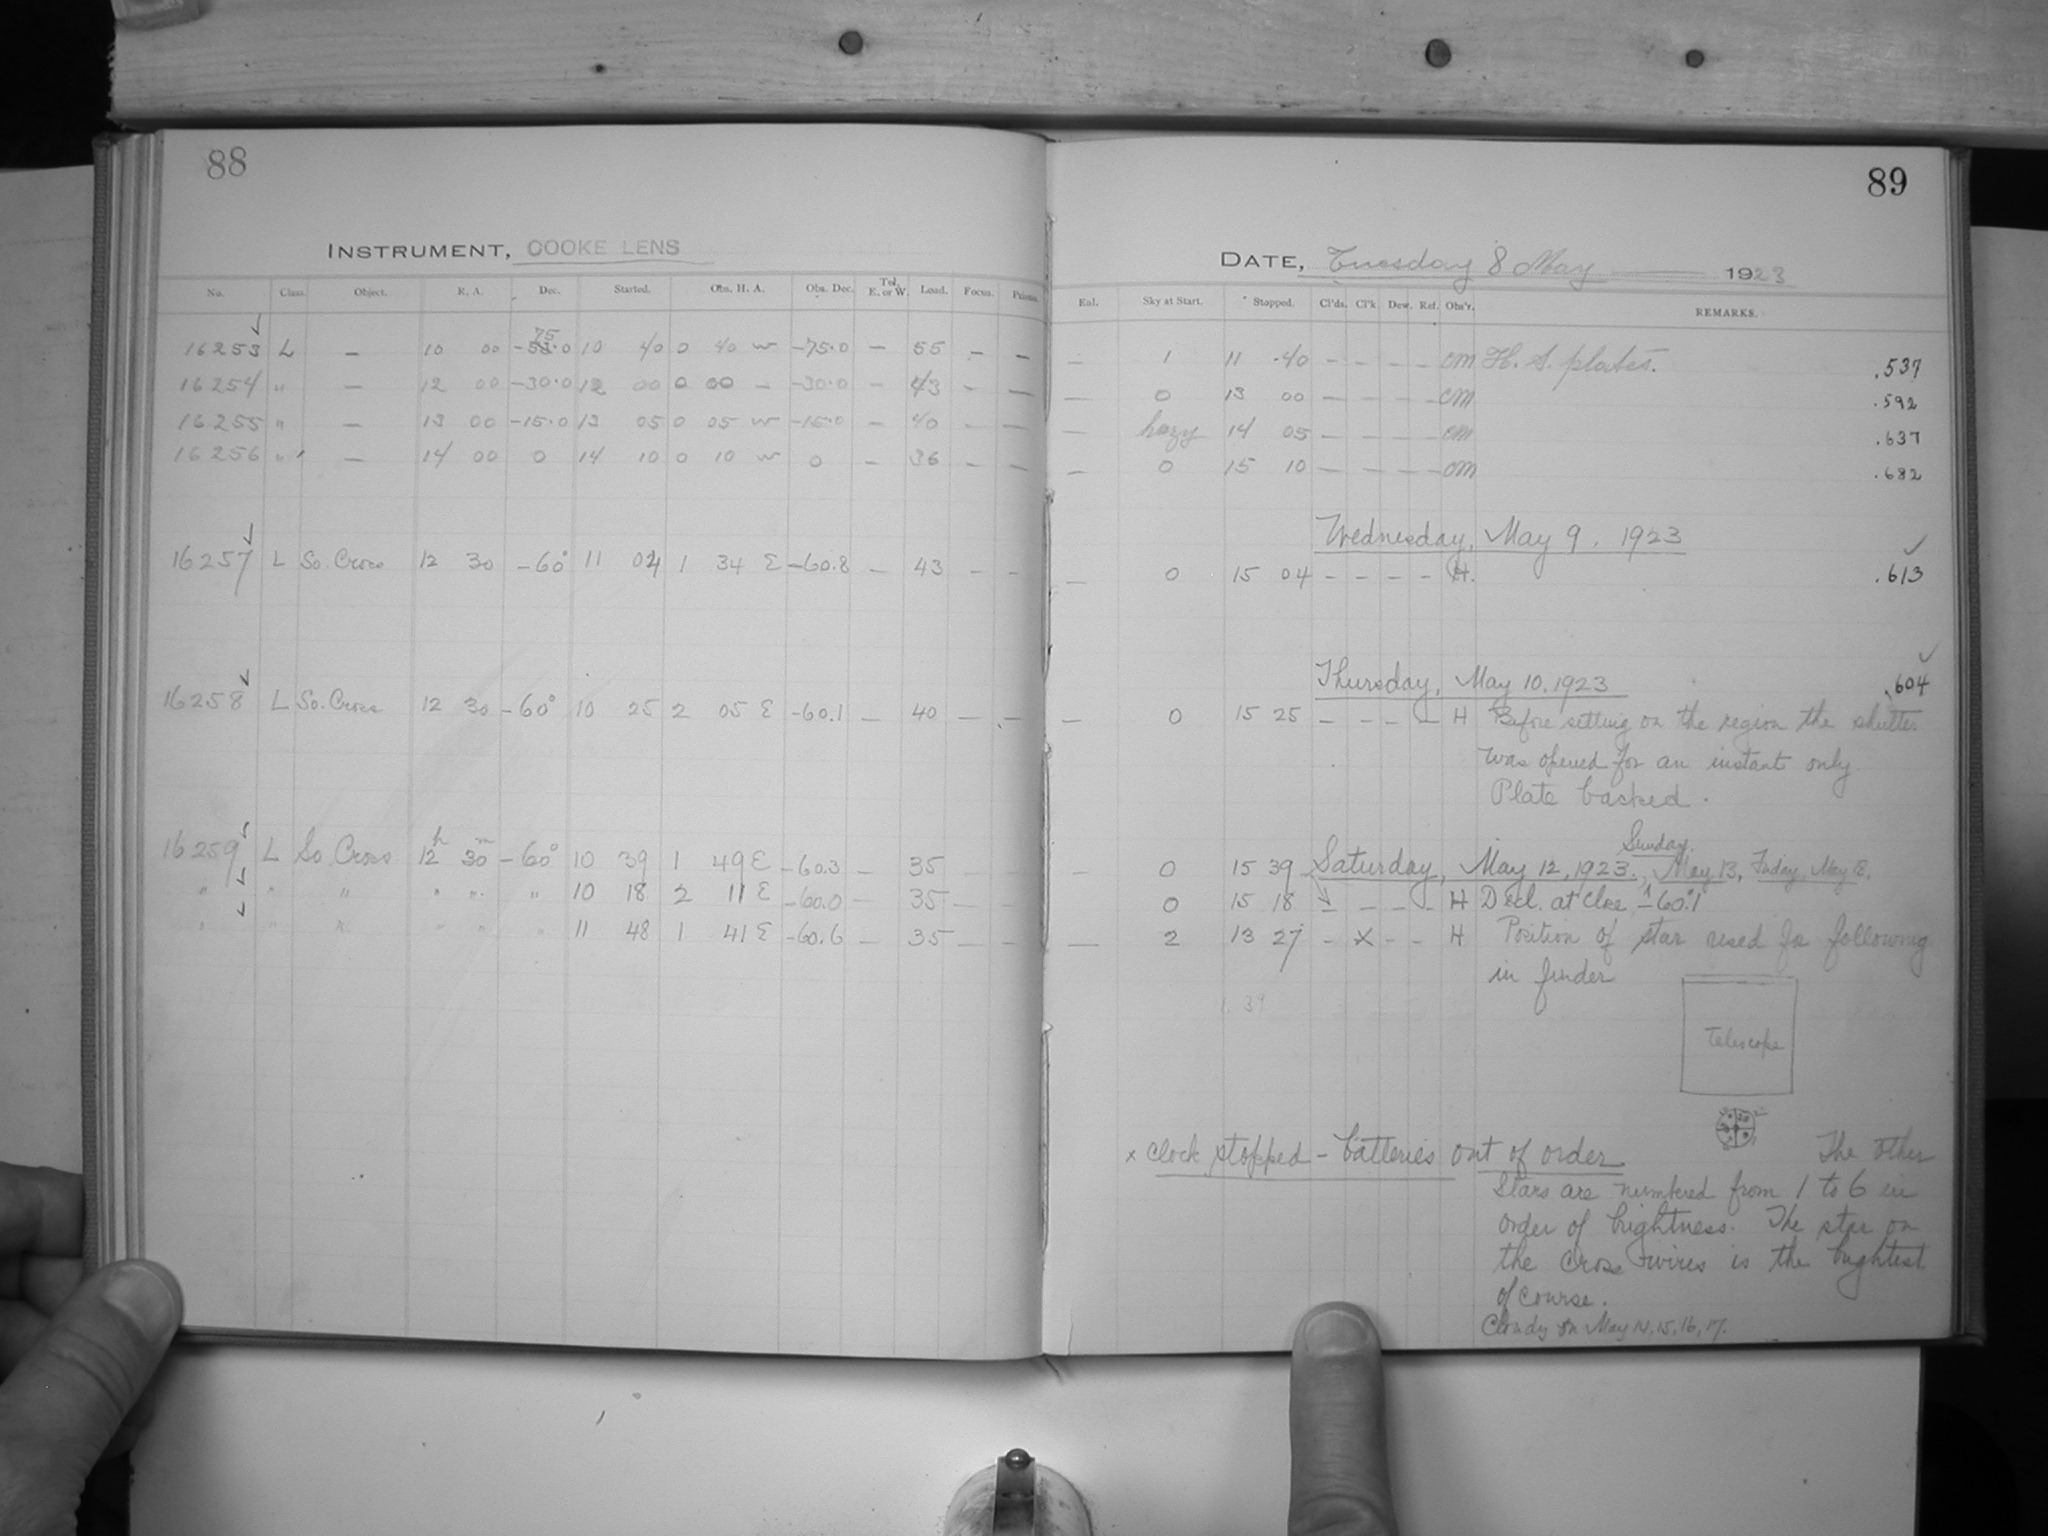 88
INSTRUMENT, COOKE LENS
No. Class. Object. R. A. Dec. Started. Obs. H. A. Obs. Dec. Tel. E. or W. Load. Focus.
16253 L — 10 00 -75.0 10 40 0 40 W -75.0 — 55 — —
16254 " — 12 00 -30.0 12 00 0 00 — -30.0 — 43 — —
16255 " — 13 00 -15.0 13 05 0 05 W -15.0 — 40 — —
16256 " — 14 00 0 14 10 0 10 W 0 — 36 — —
16257 L So. Cross 12 30 -60° 11 04 1 34 E -60.8 — 43 — —
16258 L So. Cross 12 30 -60° 10 25 2 05 E -60.1 — 40 — —
16259 L So Cross 12h 30m -60° 10 39 1 49 E -60.3 — 35 — —
" " " " " " 10 18 2 11 E -60.0 — 35 — —
" " " " " " 11 48 1 41 E -60.6 — 35 — —
89
DATE, Tuesday 8 May 1923
Sky at Start. Stopped. Cl'ds. Cl'k. Dew. Ref. Obs'r. REMARKS.
— 1 11 40 — — — — CM H. S. plates. .537
— 0 13 00 — — — — CM .592
— hazy 14 05 — — — — CM .637
— 0 15 10 — — — — CM .682
Wednesday, May 9. 1923
— 0 15 04 — — — — H. .613
Thursday, May 10, 1923 .604
— 0 15 25 — — — — H Before setting on the region the shutter
was opened for an instant only
Plate backed.
Sunday.
— 0 15 39 Saturday, May 12, 1923., May 13, Friday, May 18.
0 15 18 — — — — H Decl. at close -60°.1
— 2 13 27 — X — — H Position of star used for following
in finder
1. 39
Telescope
x Clock stopped - batteries out of order
The other
stars are numbered from 1 to 6 in
order of brightness. The star on
the cross wires is the brightest
of course.
Cloudy on May 14, 15, 16, 17.